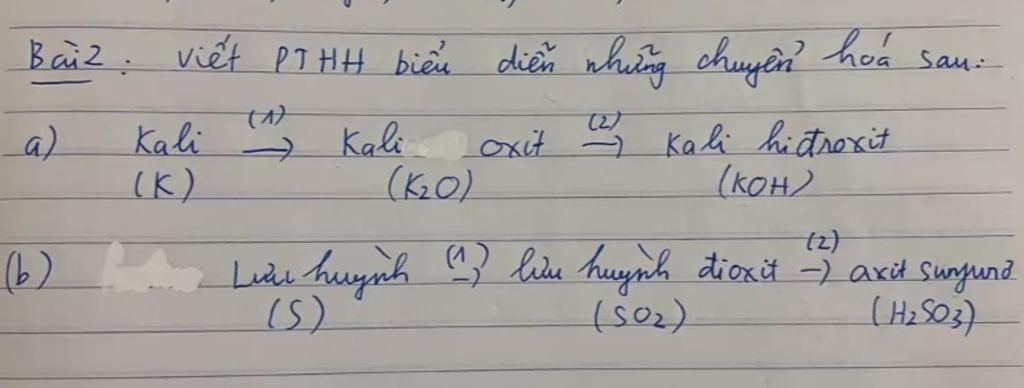 Bài 2: viết PTHH biểu diễn những chuyển hoá sau:
a) Kali (1)→ Kali oxit (2)→ Kali hiđroxit
(K) (K2O) (KOH)
(b) Lưu huỳnh (1)→ lưu huỳnh đioxit (2)→ axit sunfurơ
(S) (SO2) (H2SO3)